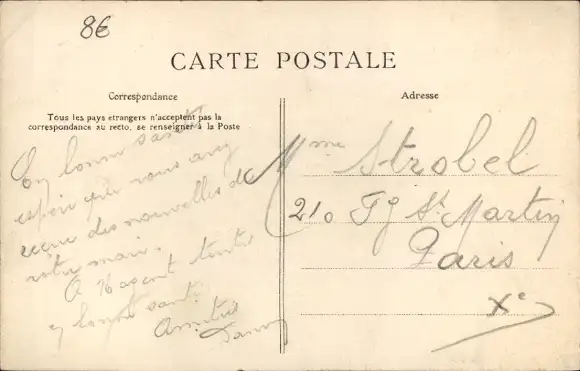 86
CARTE POSTALE
Correspondance
Adresse
Tous les pays étrangers n'acceptent pas la
correspondance au recto, se renseigner à la Poste
En bonne santé
espoir que vous avez
reçue des nouvelles de
votre mari.
A
y bonne santé
Amitié
Mme Strobel
210 Fg St Martin
Paris
Xe